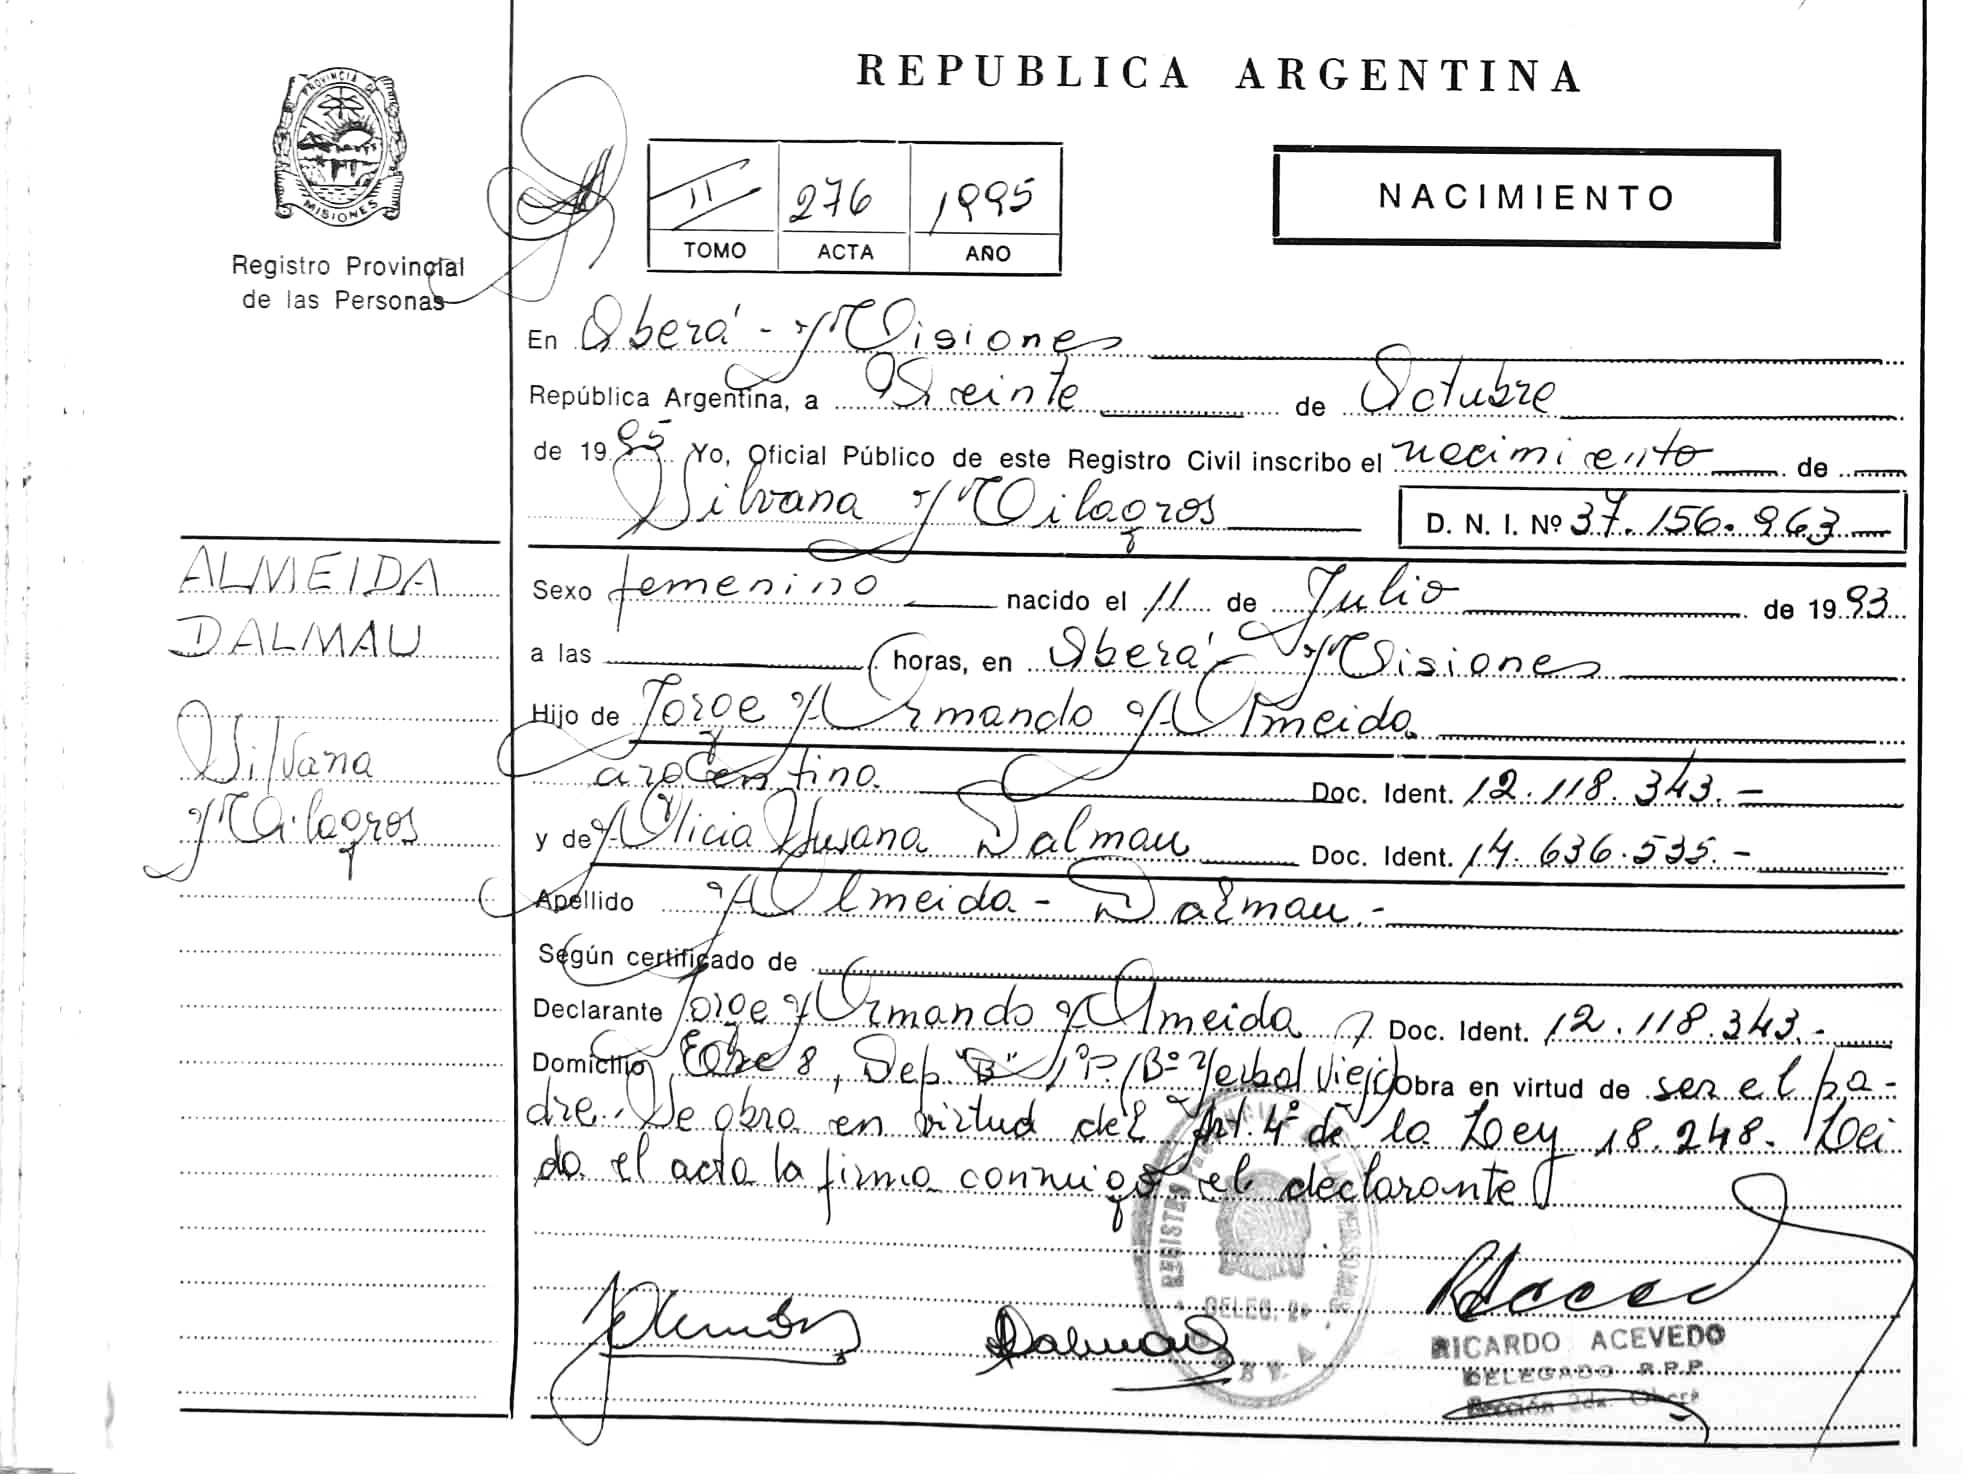 REPUBLICA ARGENTINA
PROVINCIA DE
MISIONES
Registro Provincial
de las Personas
II 276 1995
TOMO ACTA AÑO
NACIMIENTO
En Oberá - Misiones
República Argentina, a Veinte de Octubre
de 1995 Yo, Oficial Público de este Registro Civil inscribo el nacimiento de
Silvana Milagros D. N. I. Nº 37.156.963
ALMEIDA
DALMAU
Silvana
Milagros
Sexo femenino nacido el 11 de Julio de 1993
a las horas, en Oberá - Misiones
Hijo de Jorge Armando Almeida
argentino Doc. Ident. 12.118.343.-
y de Alicia Susana Dalmau Doc. Ident. 14.636.535.-
Apellido Almeida - Dalmau -
Según certificado de
Declarante Jorge Armando Almeida Doc. Ident. 12.118.343.-
Domicilio 8, Dep. "B" 1º P. Bº Yerbal Viejo obra en virtud de ser el pa-
dre. Se obra en virtud del Art. 4º de la Ley 18.248. Lei
do el acta la firma conmigo el declarante
Dalmau
RICARDO ACEVEDO
DELEGADO R.P.P.
Sección 2da. Oberá